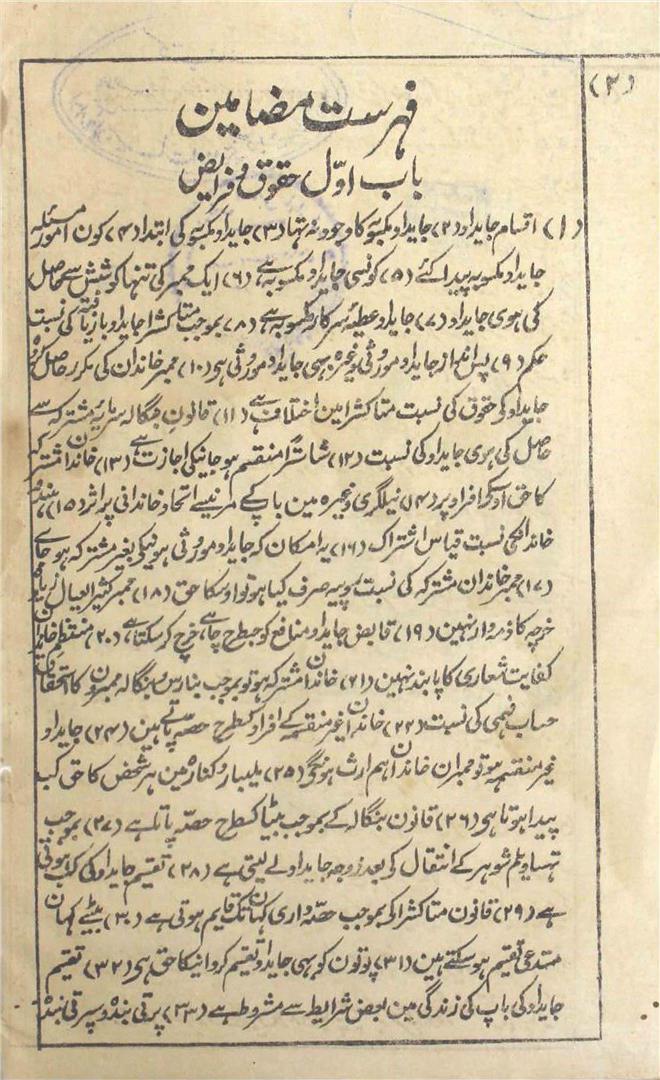 (۲)
فہرست مضامین
باب اوّل حقوق و فرایض
(۱) اقسام جایداد (۲) جایداد مکسوبہ کا وجود نہ تہا (۳) جایداد مکسوبہ کی ابتدا (۴) کون امور
جایداد مکسوبہ پیدا کئے (۵) کونسی جایداد مکسوبہ ہے (۶) ایک ممبر کی تنہا کوشش سے حاصل
کی ہوی جایداد (۷) جایداد عطیۂ سرکار مکسوبہ ہے (۸) بموجب متاکشرا جایداد بازیافتہ کی نسبت
حکم (۹) پس انداز جایداد موروثی وغیرہ بہی جایداد موروثی ہی (۱۰) ممبر خاندان کی مکرر حاصل کردہ
جایداد کو حقوق کی نسبت متاکشرا مین اختلاف ہے (۱۱) قانون بنگالہ سرمایہ مشترکہ سے
حاصل کی ہوی جایداد کی نسبت (۱۲) شاسترًا منقسم ہو جانیکی اجازت ہے (۱۳) خاندان مشترکہ
کا حق اوسکو افراد پر (۱۴) نیلگری وغیرہ مین باپ کے مرنیسے اتحاد خاندانی پر اثر (۱۵) ہندو
خاندانکی نسبت قیاس اشتراک (۱۶) یہ امکان کہ جایداد موروثی ہونیکی بغیر مشترکہ ہو جاے
(۱۷) ممبر خاندان مشترکہ کی نسبت روپیہ صرف کیا ہو تو اوسکا حق (۱۸) ممبر کثیر العیال زیادہ
خرچہ کا ذمہ وار نہین (۱۹) قابض جایداد منافع کو جسطرح چاہے خرچ کر سکتا ہے (۲۰) منتظم خاندان
کفایت شعاری کا پابند نہین (۲۱) خاندان مشترکہ ہو تو بموجب بنارس و بنگالہ ممبرون کا استحقاق
حساب فہمی کی نسبت (۲۲) خاندان غیر منقسمہ کے افراد کسطرح حصہ پاتے ہین (۲۴) جایداد
غیر منقسمہ ہو تو ممبران خاندان اہم ارث ہونگی (۲۵) ملیبار و کنارہ مین ہر شخص کا حق کب
پیدا ہوتا ہی (۲۶) قانون بنگالہ کے بموجب بیٹا کسطرح حصہ پاتا ہے (۲۷) بموجب
تہساولم شوہر کے انتقال کی بعد زوجہ جایداد لے لیتی ہے (۲۸) تقسیم جایداد کی کب ہوتی
ہے (۲۹) قانون متاکشرا کی بموجب حصہ داری کہان تک قایم ہوتی ہے (۳۰) بیٹے کہان
مدعی تقسیم ہو سکتے ہین (۳۱) پوتون کو بہی جایداد تقسیم کروانیکا حق ہی (۳۲) تقسیم
جایداد کی باپ کی زندگی مین بعض شرایط سے مشروط ہے (۳۳) پرتی بندہ و سپرتی بندہ